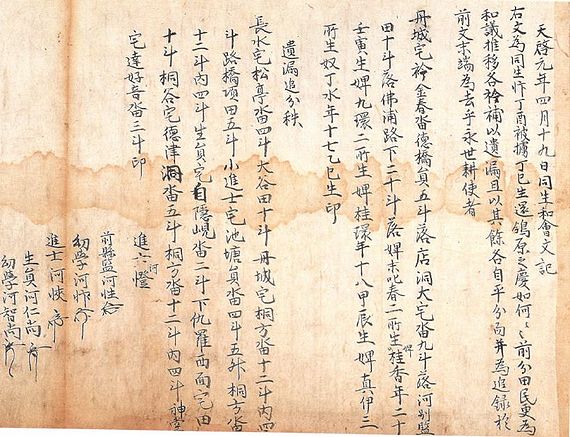 天啓元年四月十九日同生和會文記
右文為同生忤丁酉被擄丁巳生還鴒原之慶如何〻前分田民更為
和議推移各衿補以遺漏且以其餘各自平分為并為追錄於
前文末端為去乎永世耕使者
丹城宅衿金春畓德橋員五斗落店洞大宅畓九斗落河別監
田十斗落佛浦路下二十斗落婢末叱春二所生婢桂香年二十
壬寅生婢九環二所生婢桂環年十八甲辰生婢真伊三
所生奴丁水年十七乙巳生印
遺漏追分秩
長水宅松亭畓四斗大谷田十斗丹城宅桐方畓十二斗內四
斗路橋項田五斗小進士宅池塘員畓四斗五升桐方畓
十二斗內四斗生員宅自隱峴畓二斗下仇羅西面宅田
十斗桐谷宅德津洞畓五斗桐方畓十二斗內四斗神堂
宅達好音畓三斗印
進士河憕
前縣監河惺
幼學河忤
進士河悏
生員河仁尚
幼學河智尚